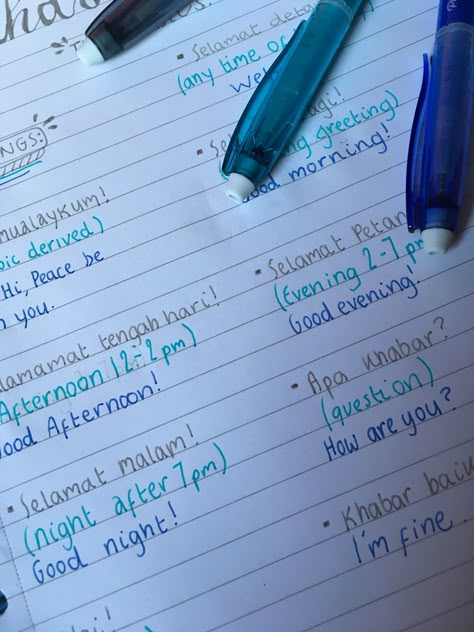 NGS:
mualaykum!
bic derived)
Hi, Peace be
you.
lamamat tengah hari!
Afternoon 12-2pm)
ood Afternoon!
• Selamat malam!
(night after 7pm)
Good night!
• Selamat
(any time or
• Se agi!
ng greeting)
ood morning!
• Selamat Petan
(Evening 2-7pm
Good evening!
• Apa khabar?
(question)
How are you?
• Khabar baik
I'm fine